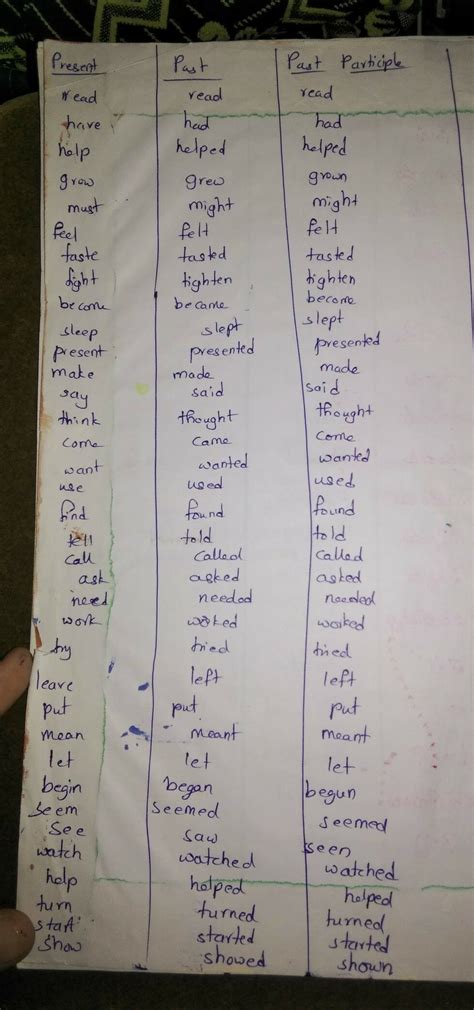 Present Past Past Participle
read read read
have had had
help helped helped
grow grew grown
must might might
feel felt felt
taste tasted tasted
fight tighten tighten
become became become
sleep slept slept
present presented presented
make made made
say said said
think thought thought
come came come
want wanted wanted
use used used
find found found
tell told told
call called called
ask asked asked
need needed needed
work worked worked
try tried tried
leave left left
put put put
mean meant meant
let let let
begin began begun
seem seemed seemed
see saw seen
watch watched watched
help helped helped
turn turned turned
start started started
show showed shown